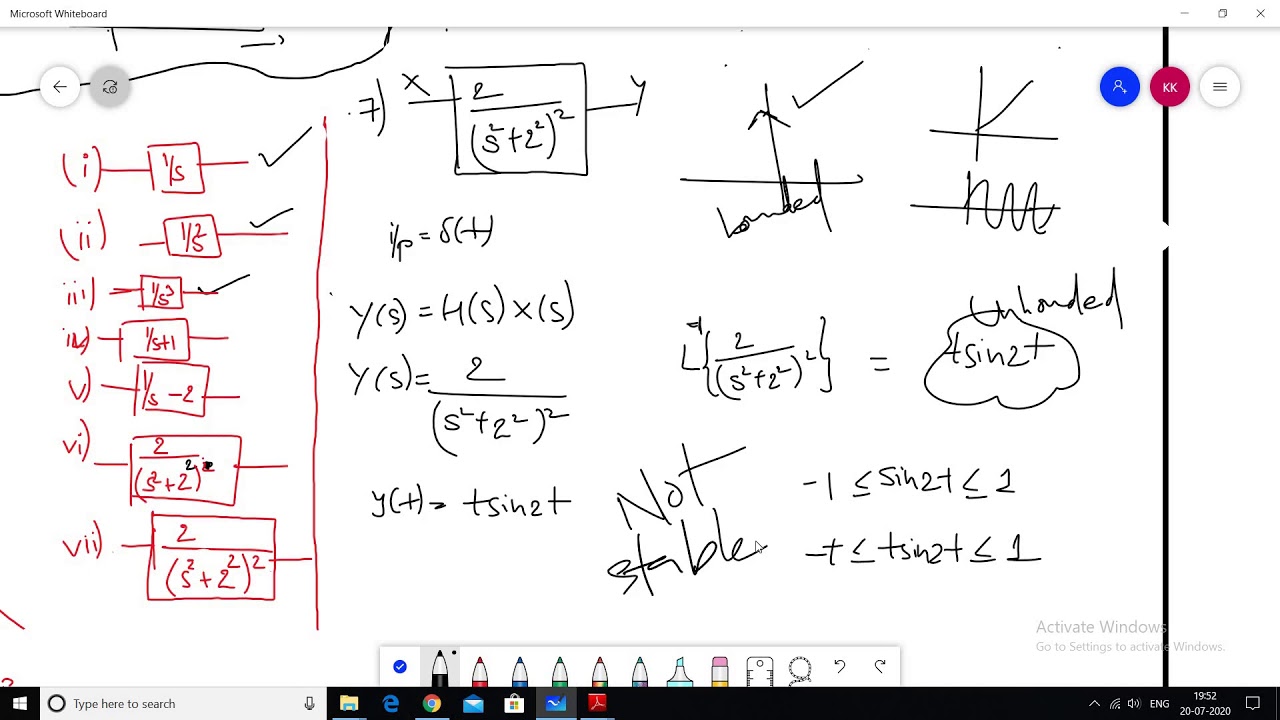 Microsoft Whiteboard
KK
(i) 1/s
(ii) 1/s²
iii) 1/s³
iv) 1/s+1
v) 1/s-2
vi) 2/(s²+2²)
vii) 2/(s²+2²)²
7) X 2/(s²+2²)² Y
i/p = δ(t)
Y(s) = H(s) X(s)
Y(s) = 2/(s²+2²)²
y(t) = tsin2t
bounded
Unbonded
L⁻¹{2/(s²+2²)²} = tsin2t
Not
stable
-1 ≤ sin2t ≤ 1
-t ≤ tsin2t ≤ 1
Activate Windows
Go to Settings to activate Windows.
Type here to search
ENG
19:52
20-07-2020